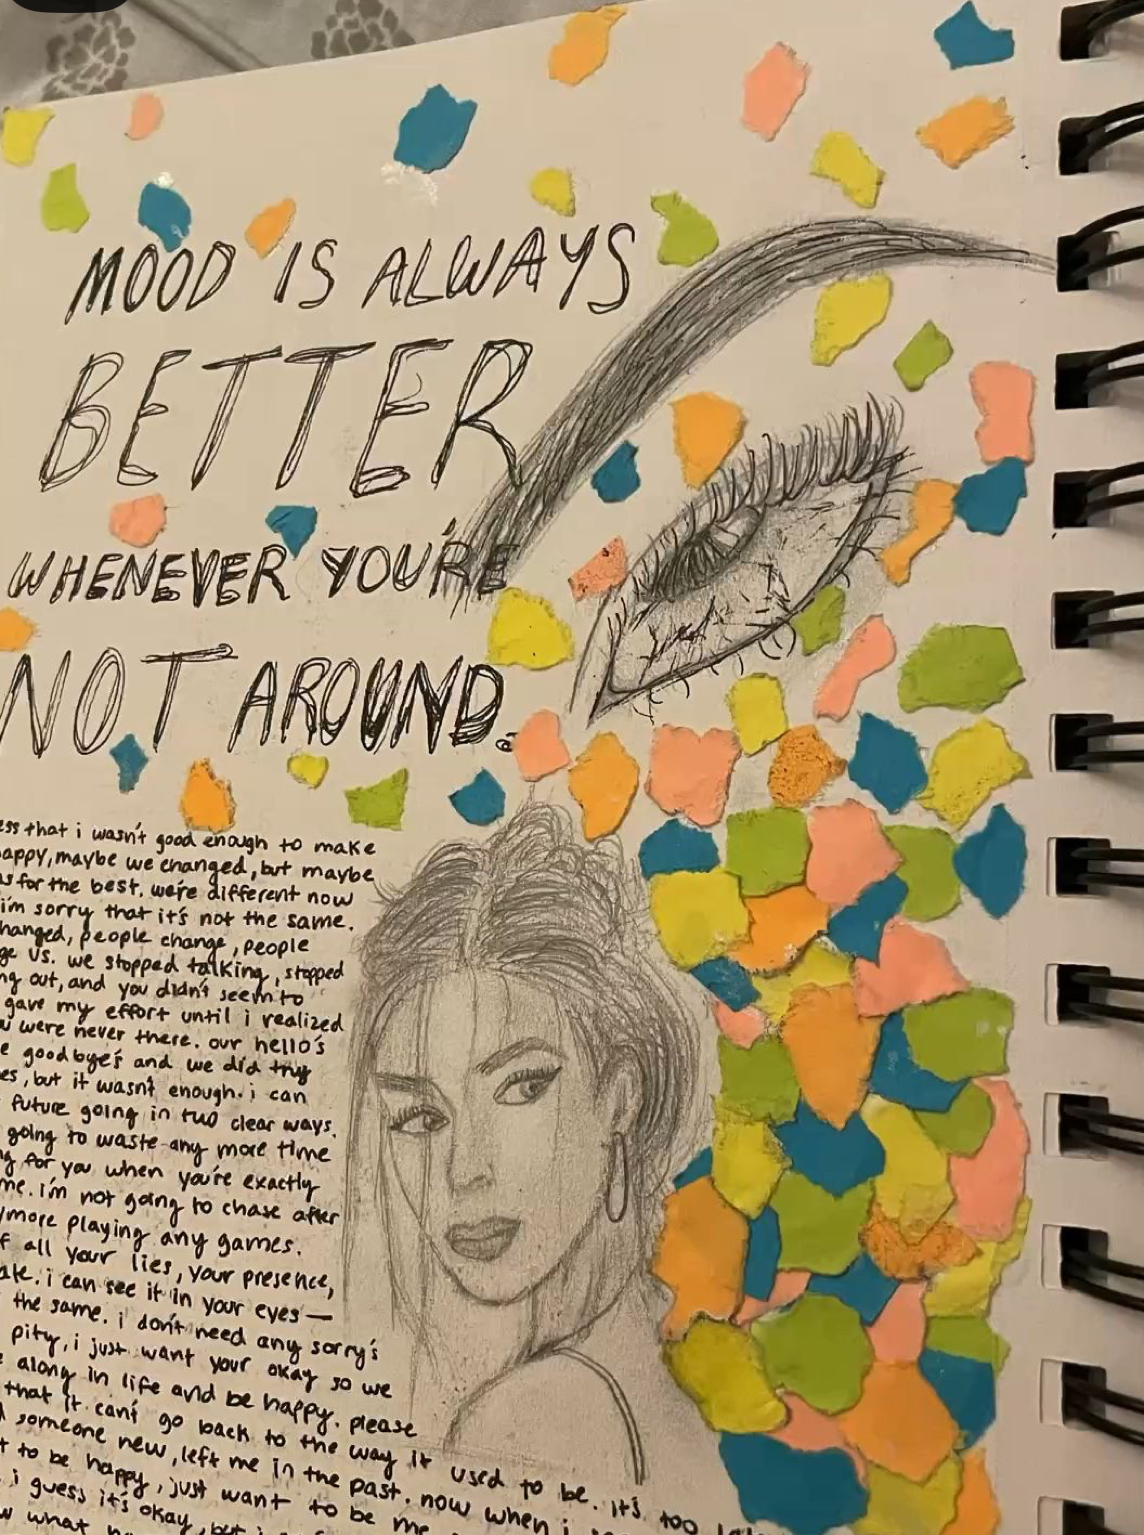 MOOD IS ALWAYS
BETTER
WHENEVER YOU'RE
NOT AROUND.
ess that i wasn't good enough to make
appy, maybe we changed, but maybe
as for the best. we're different now
i'm sorry that it's not the same.
hanged, people change, people
ge us. we stopped talking, stopped
ng out, and you didn't seem to
gave my effort until i realized
u were never there. our hello's
e goodbye's and we did try
es, but it wasn't enough. i can
future going in two clear ways.
going to waste any more time
ng for you when you're exactly
me. i'm not going to chase after
ymore playing any games.
f all your lies, your presence,
ate. i can see it in your eyes—
the same. i don't need any sorry's
pity, i just want your okay so we
e along in life and be happy. please
that it can't go back to the way it used to be. it's too
d someone new, left me in the past. now when i
t to be happy, just want to be me
i guess it's okay, but i
w what